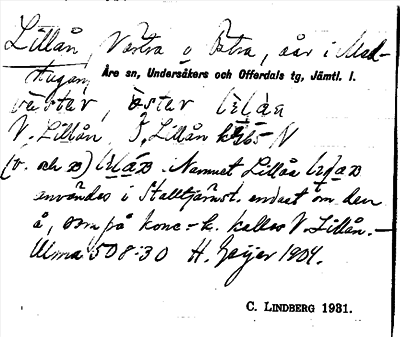 Lillån, Västra o Östra, åar i Med-
stugan, Åre sn, Undersåkers och Offerdals tg, Jämtl. l.
väster, öster
V. Lillån, Ö. Lillån
(v. och ö) Namnet Lillån
användes i Stalltjärnst. endast om den
å, som på konc-k. kallas V. Lillån.-
Ulma 508:30 H. Geijer 1904.
C. LINDBERG 1931.